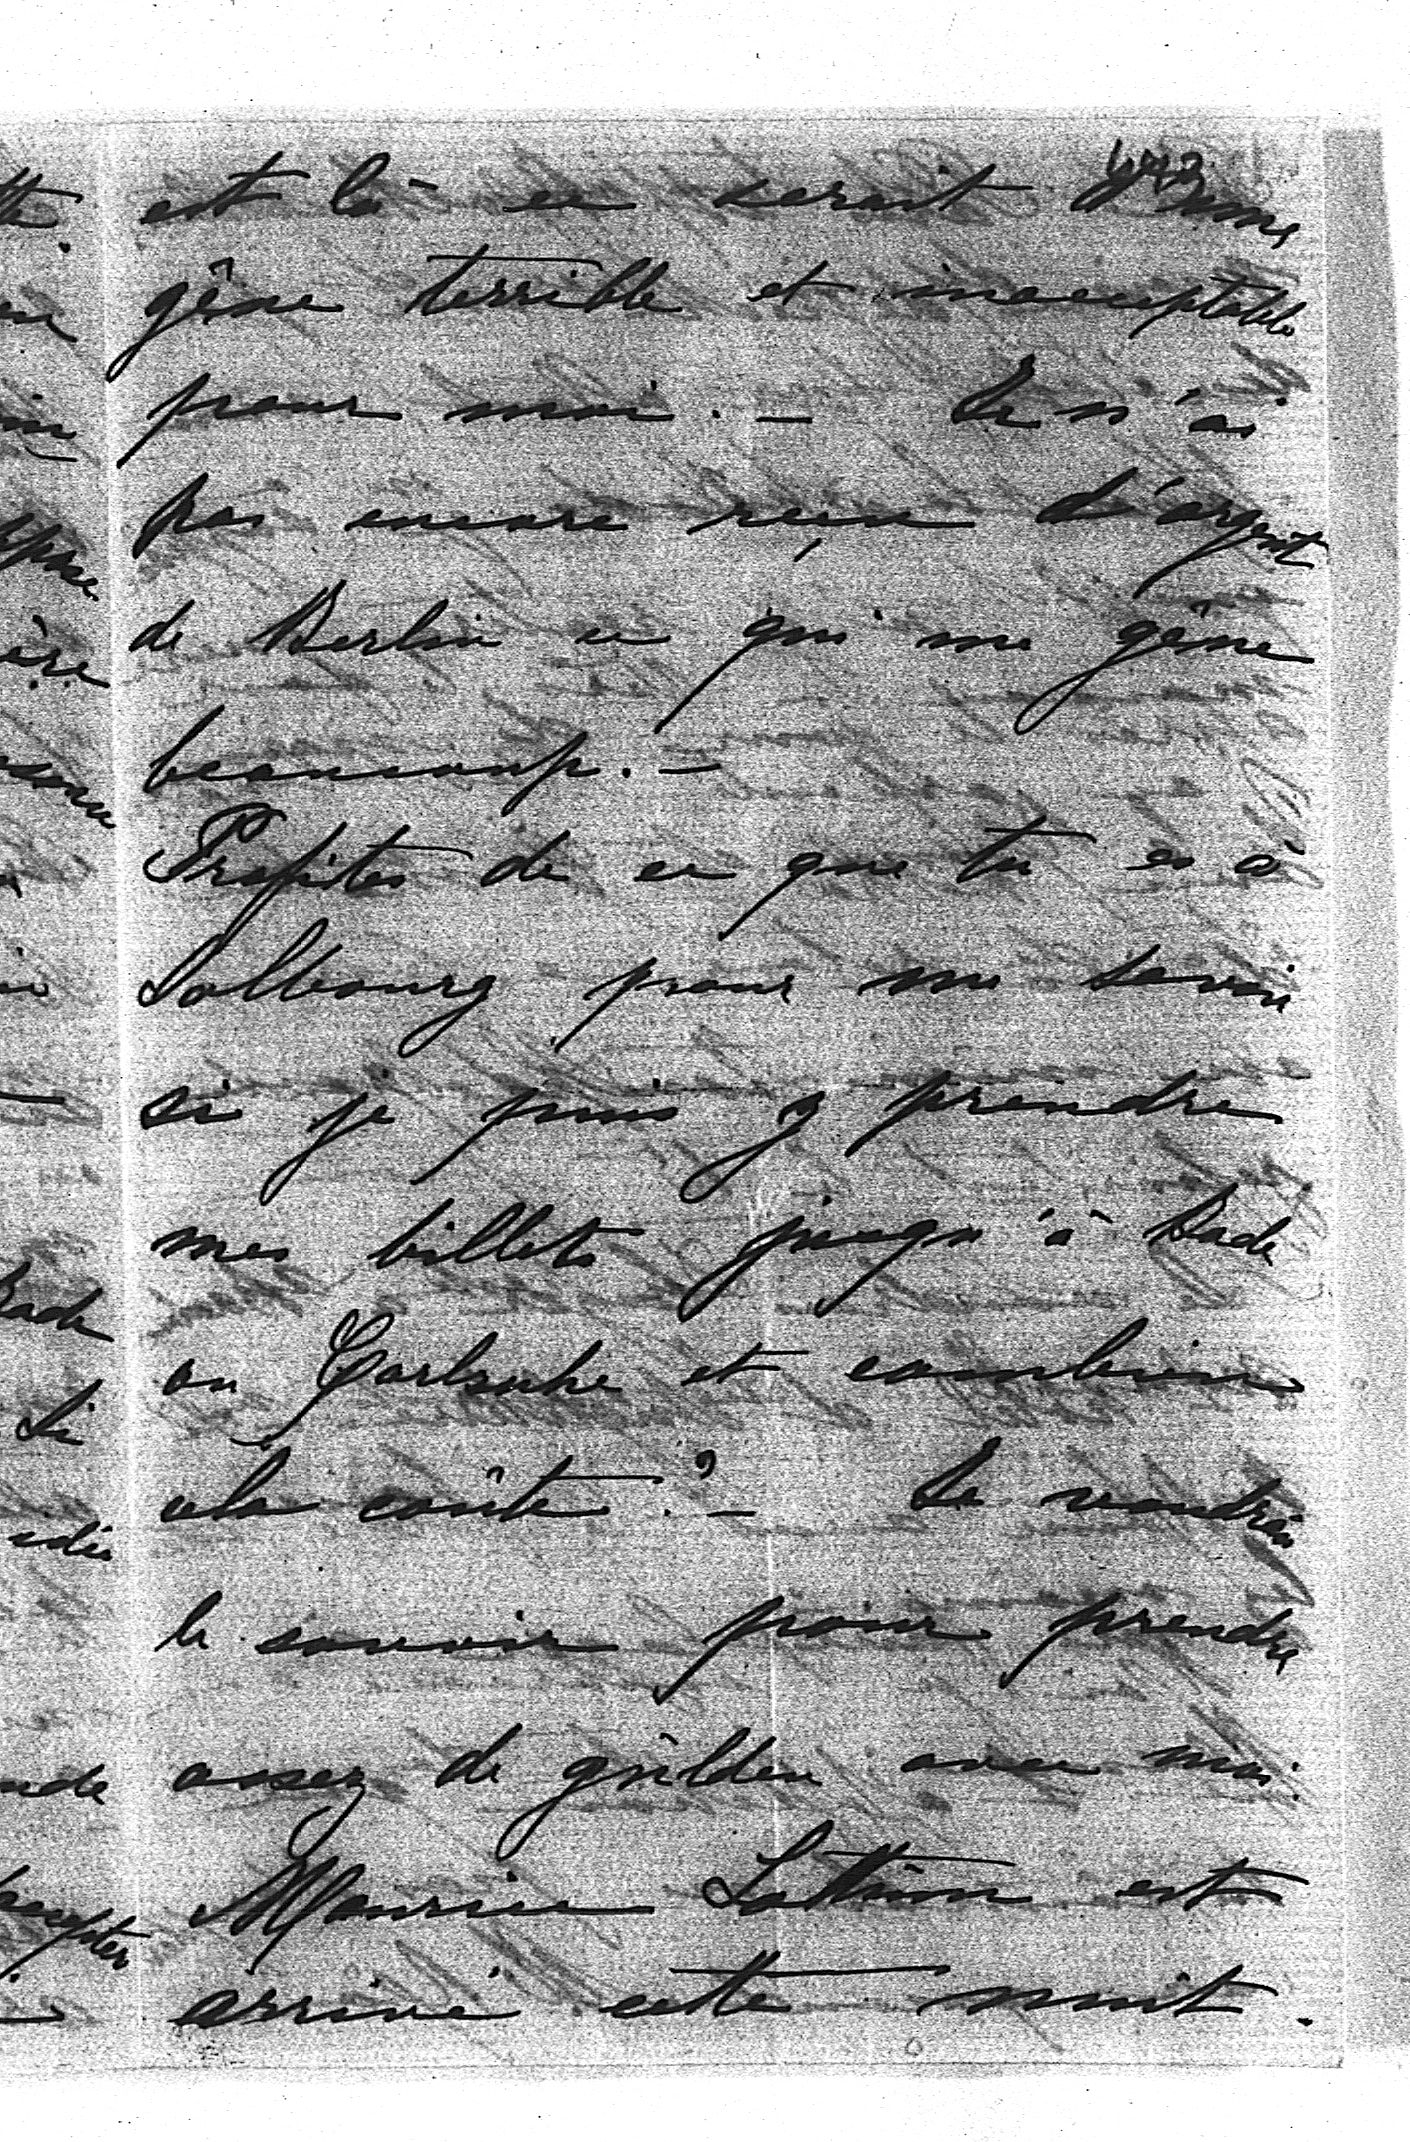 est là ce serait d'une
gêne terrible et inacceptable
pour moi. — Je n'ai
pas encore reçu d'argent
de Berlin ce qui me gêne
beaucoup. —
Profites de ce que tu es à
Salbourg pour me savoir
si je puis y prendre
mes billets jusqu'à Bade
ou Carlsruhe et combien
cela coûte? — Je voudrais
le savoir pour prendre
assez de gülden avec moi.
Maurice est
arrivé cette nuit.